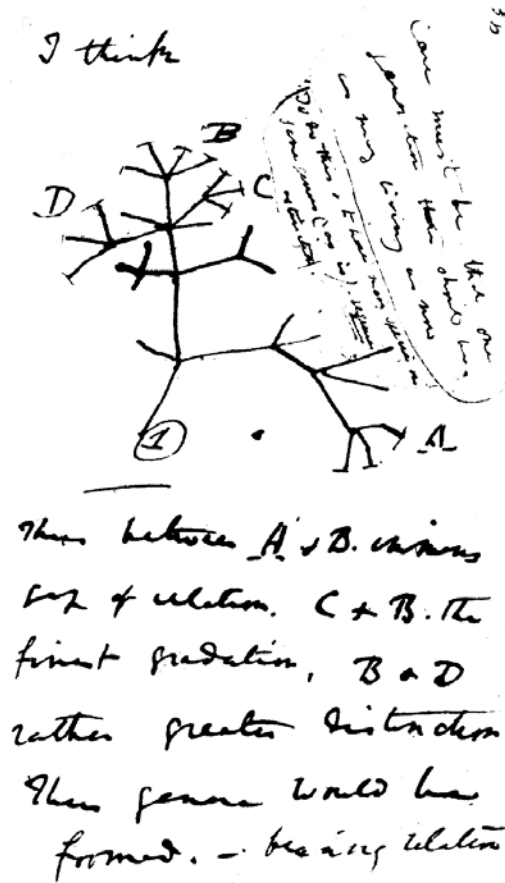 I think
B
D
C
A
1
Case must be that one
generation then should be
as many living as now
To do this & to have many species in
same genus (as is) requires
extinction.
Thus between A & B. immense
gap of relation. C & B. the
finest gradation, B & D
rather greater distinction
Thus genera would be
formed. — bearing relation
36